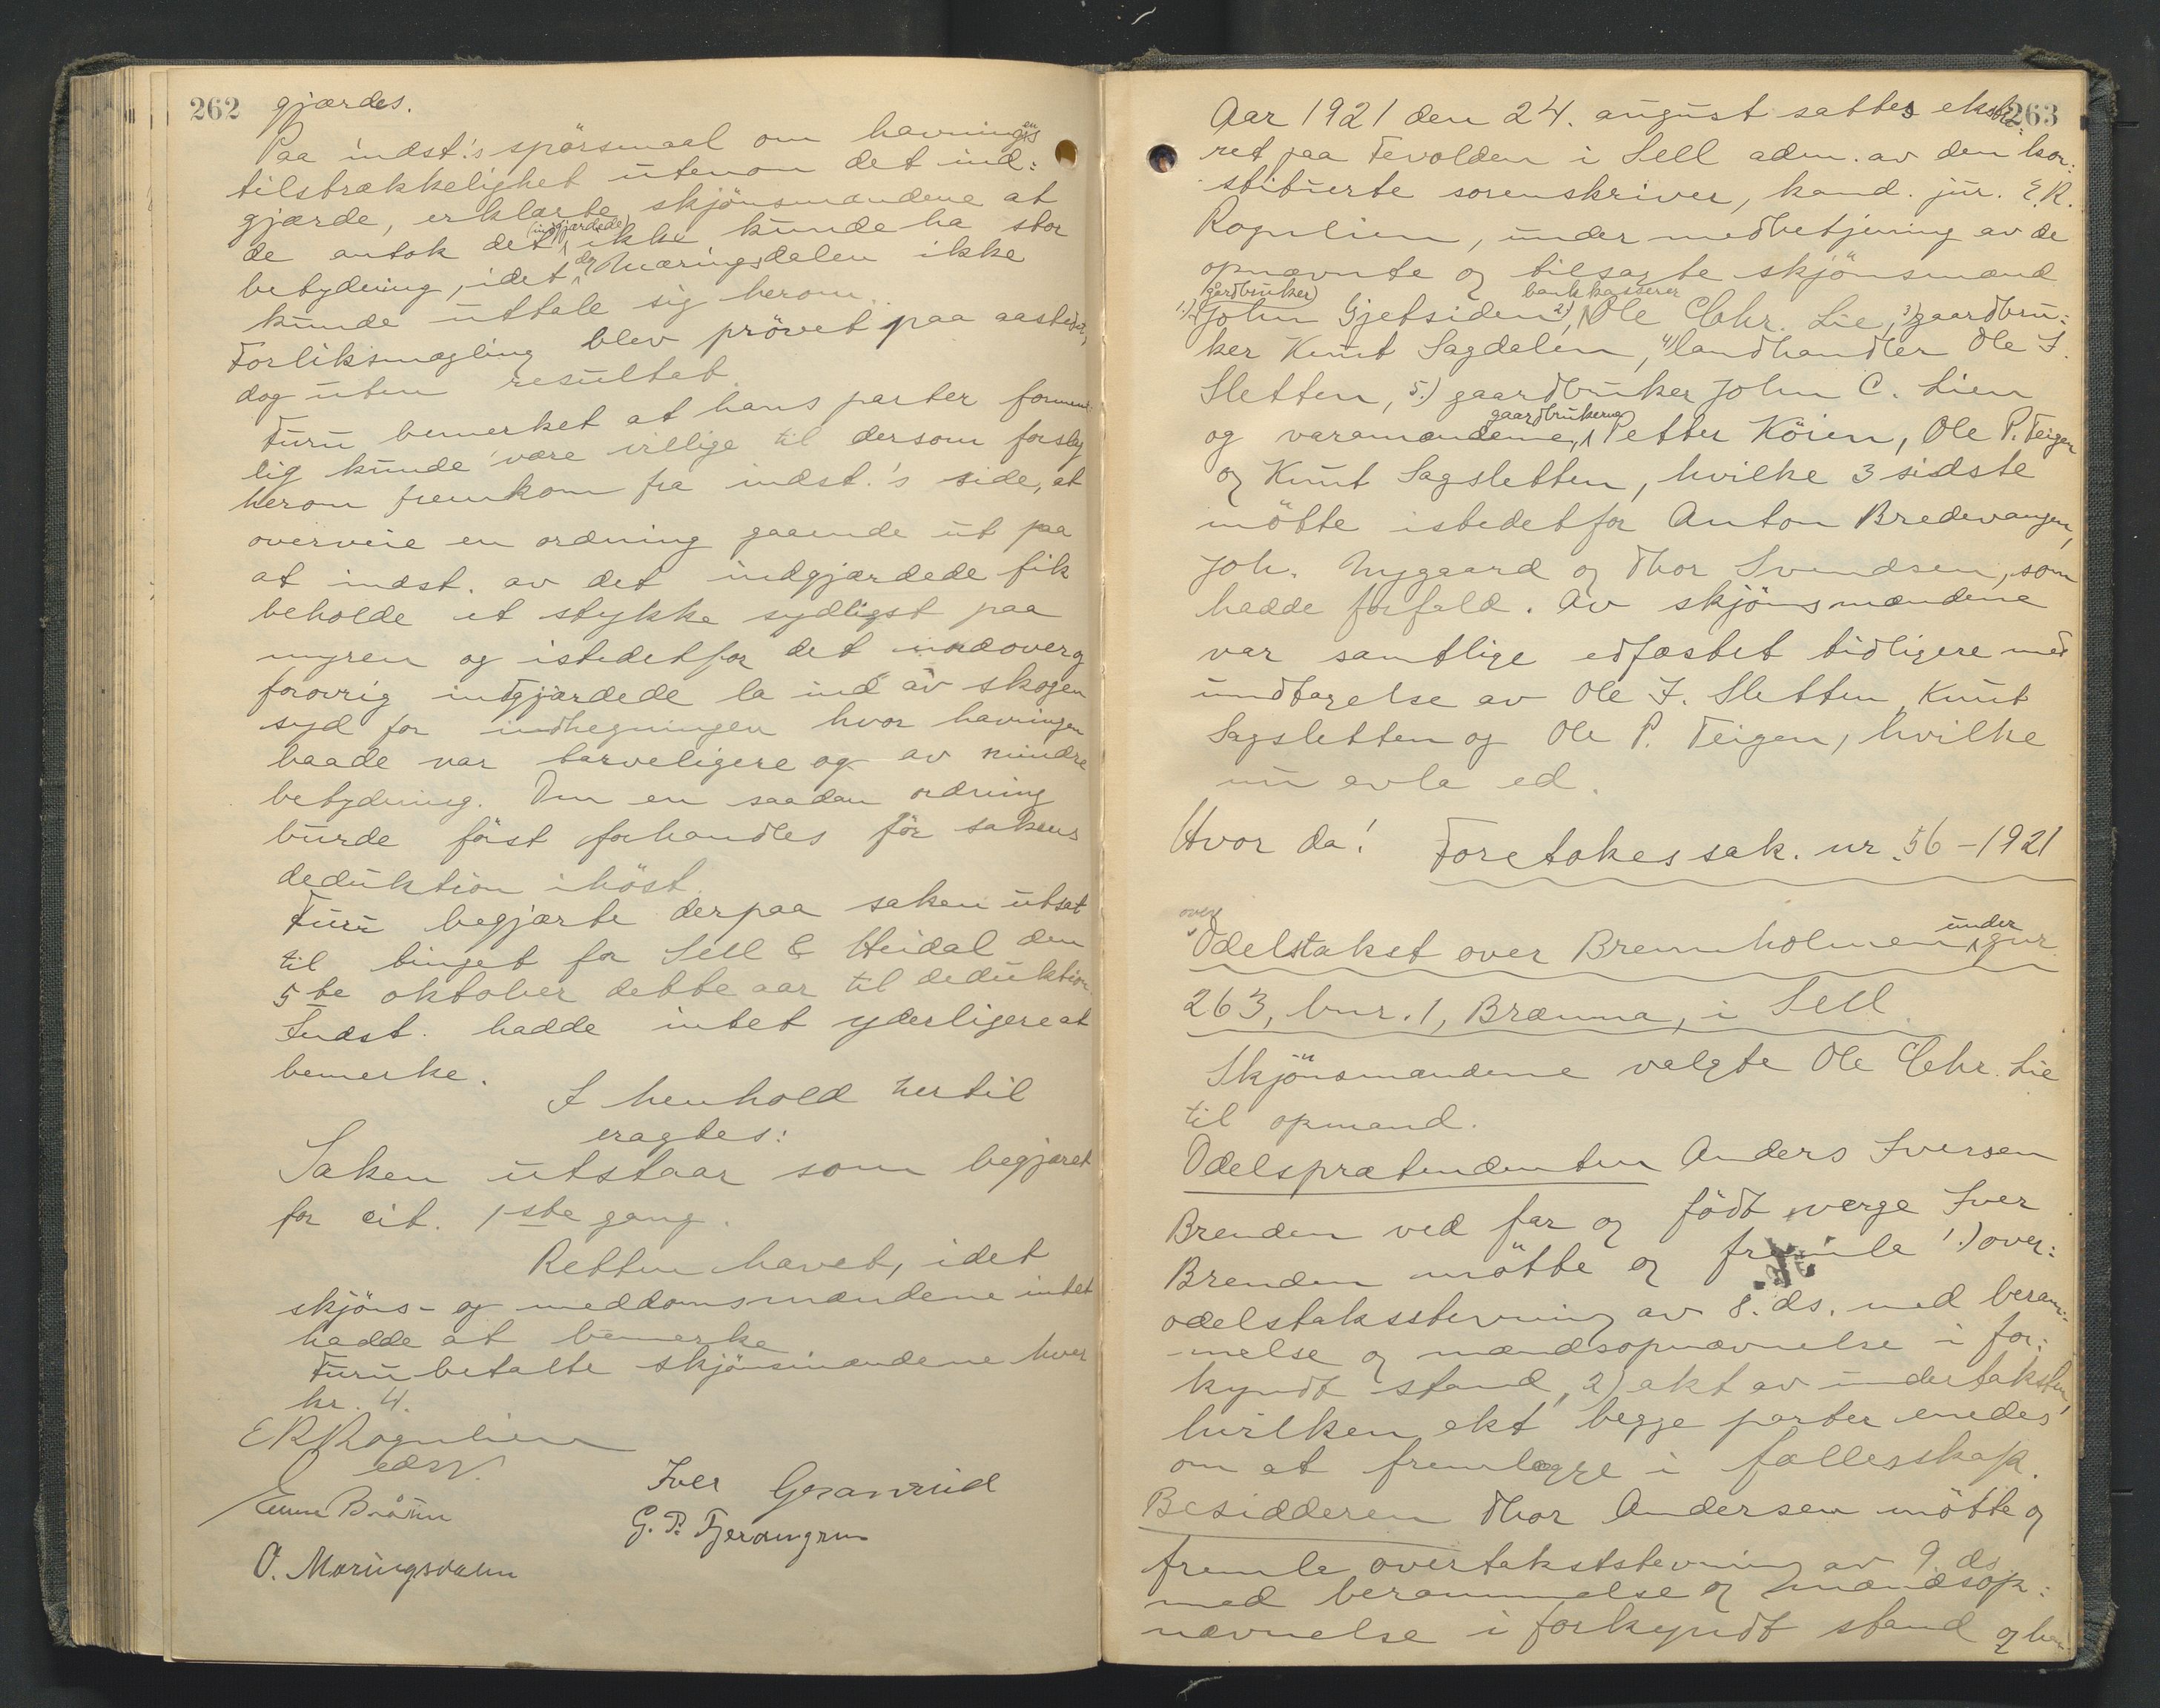 262 gjærdes.
Paa indst.'s spörsmaal om havningens
tilstrækkelighet utenom det ind:
gjærde, erklærte skjönsmændene at
de antok det (indgjærdede) ikke kunde ha stor
betydning, idet dog Mæringsdalen ikke
kunde uttale sig herom.
Forliksmægling blev prövet paa aastedet,
dog uten resultat.
Furu bemerket at hans parter forment:
lig kunde være villige til dersom forslag
herom fremkom fra indst.'s side, at
overveie en ordning gaaende ut paa
at indst. av det indgjærdede fik
beholde et stykke sydligst paa
myren og istedetfor det nordover og
forövrig indgjærdede la ind av skogen
syd for indhegningen hvor havningen
baade var tarveligere og av mindre
betydning. Om en saadan ordning
burde först forhandles för sakens
deduktion i höst.
Furu begjærte derpaa saken utsat
til tinget for Sell & Heidal den
5te oktober dette aar til deduktion.
Indst. hadde intet yderligere at
bemerke.
I henhold hertil
eragtes:
Saken utstaar som begjæret
for cit. 1ste gang.
Retten hævet, idet
skjöns- og meddomsmændene intet
hadde at bemerke
Furu betalte skjönsmændene hver
kr. 4.
E R Rognlien
edsv.
Iver Granrud
G. P. Tjerangrun
O. Mæringsdalen
263
Aar 1921 den 24. august sattes ekstra:
ret paa Tevolden i Sell adm. av den kon:
stituerte sorenskriver, kand. jur. E.R.
Rognlien, under medbetjening av de
opnævnte og tilsagte skjönsmænd
1.) (gårdbruker) John Gjetsiden 2), bankkasserer Ole Chr. Lie, 3) gaardbru:
ker Knut Sagdalen, 4) landhandler Ole I.
Sletten, 5.) gaardbruker John C. Lien
og varamændene, gaardbrukerne Petter Köien, Ole P. Teigen
og Knut Sagsletten, hvilke 3 sidste
mötte istedetfor Anton Bredevangen,
Joh. Nygaard og Thor Svendsen, som
hadde forfald. Av skjönsmændene
var samtlige edfæstet tidligere med
undtagelse av Ole I. Sletten, Knut
Sagsletten og Ole P. Teigen, hvilke
nu avla ed.
Hvor da! Foretokes sak. nr. 56 - 1921
over
Odelstakst over Brennholmen under gnr.
263, bnr. 1, Brænna, i Sell.
Skjönsmændene valgte Ole Chr. Lie
til opmand.
Odelsprætendenten Anders Iversen
Brenden ved far og födt verge Iver
Brenden mötte og fremla 1.) over:
odelstakststevning av 8. ds. med beram:
-melse og mændsopnævnelse i for:
kyndt stand, 2) akt av undertaksten,
hvilken akt begge parter enedes
om at fremlægge i fællesskap.
Besidderen Thor Andersen mötte og
fremla overtakststevning av 9. ds.
med berammelse og mændsop:
nævnelse i forkyndt stand og